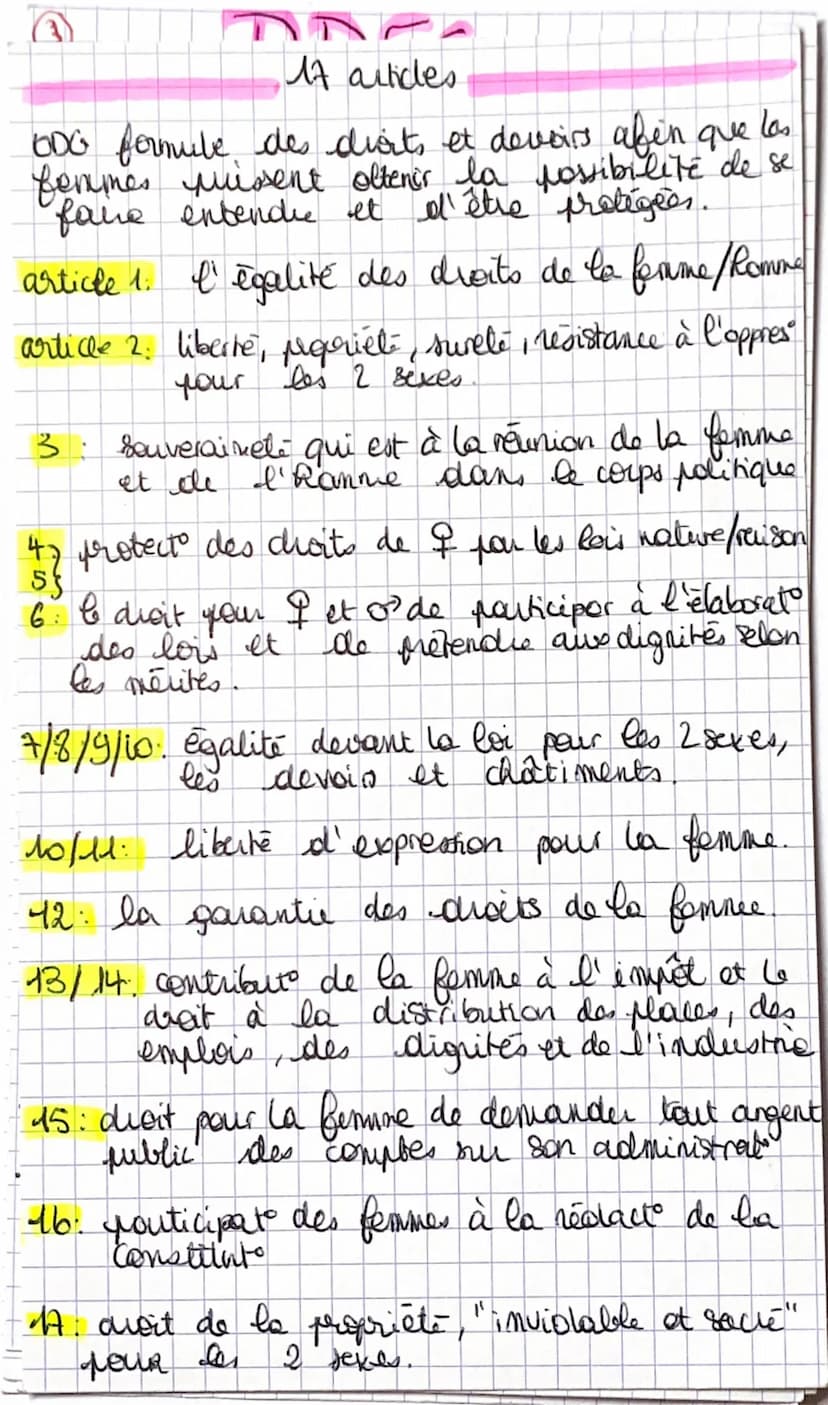 3
DDFC
17 articles
ODG formule des droits et devoirs afin que les
femmes puissent obtenir la possibilité de se
faire entendre et d'être protégées.
article 1: l'égalité des droits de la femme/homme
article 2: liberté, propriété, sureté, résistance à l'oppres°
pour les 2 sexes.
3 : souveraineté qui est à la réunion de la femme
et de l'homme dans le corps politique
4} protect° des droits de ♀ par les lois nature/raison
5}
6: le droit pour ♀ et ♂ de participer à l'élaborat°
des lois et de prétendre aux dignités selon
les mérites.
7/8/9/10: égalité devant la loi pour les 2 sexes,
les devoirs et châtiments.
10/11: liberté d'expression pour la femme.
12: la garantie des droits de la femme.
13/14: contribut° de la femme à l'impôt et le
droit à la distribution des places, des
emplois, des dignités et de l'industrie
15: droit pour la femme de demander tout argent
public des comptes sur son administrat°
16: participat° des femmes à la rédact° de la
Constitut°
17: droit de la propriété, "inviolable et sacré"
pour les 2 sexes.